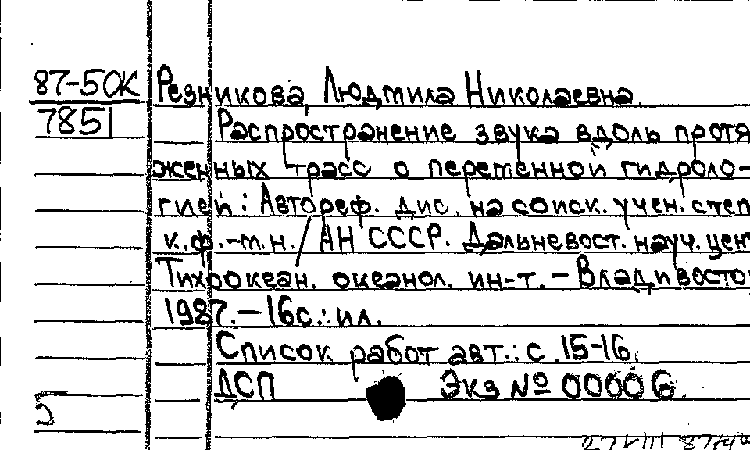 87-50К Резникова, Людмила Николаевна.
7851 Распространение звука вдоль протя
женных трасс с переменной гидроло-
гией: Автореф. дис. на соиск. учен. степ
к.ф.-м.н. / АН СССР. Дальневост. науч. цен
Тихоокеан. океанол. ин-т. - Владивосто
1987. - 16с.: ил.
Список работ авт.: с. 15-16.
ДСП Экз № 00006